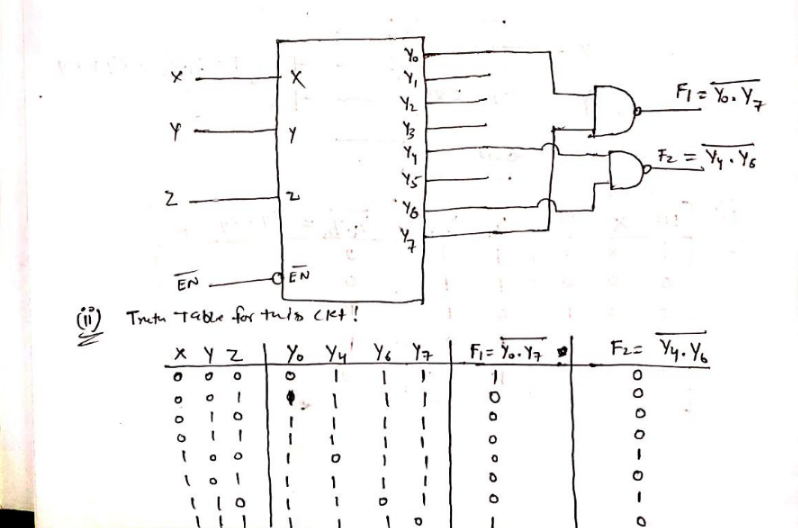 Y₀
X X Y₁ F₁ = \overline{Y₀.Y₇}
Y₂
Y Y Y₃
Y₄ F₂ = \overline{Y₄.Y₆}
Y₅
Z Z Y₆
Y₇
\overline{EN} \overline{EN}
(ii) Truth Table for this ckt!
X Y Z Y₀ Y₄ Y₆ Y₇ F₁ = \overline{Y₀.Y₇} F₂ = \overline{Y₄.Y₆}
0 0 0 0 1 1 1 1 0
0 0 1 1 1 1 1 0 0
0 1 0 1 1 1 1 0 0
0 1 1 1 1 1 1 0 0
1 0 0 1 0 1 1 0 1
1 0 1 1 1 1 1 0 0
1 1 0 1 1 0 1 0 1
1 1 1 1 1 1 0 1 0